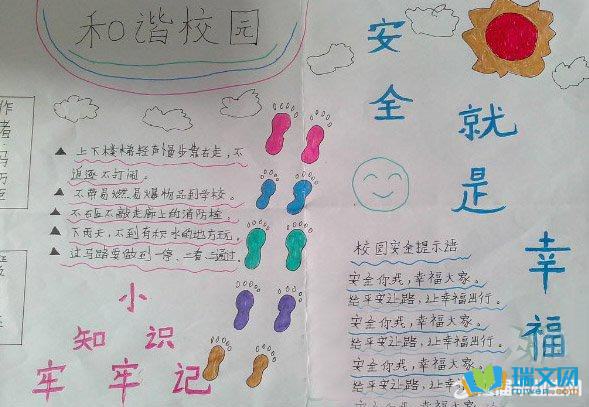 和谐校园
作
者
冯
万
上下楼梯轻声慢步靠右走，不
追逐不打闹。
不带易燃易爆物品到学校。
不右压不敲走廊上的消防栓。
下雨天，不到有积水的地方玩。
过马路要做到一停、二看、三通过。
小
知识
牢牢记
安全
就是
幸福
校园安全提示语
安全你我，幸福大家。
给平安让路，让幸福出行。
安全你我，幸福大家。
给平安让路，让幸福出行。
安全你我，幸福大家。
给平安让路，让幸福出行
安全你我，幸福大家。
瑞文网
ruiwen.com